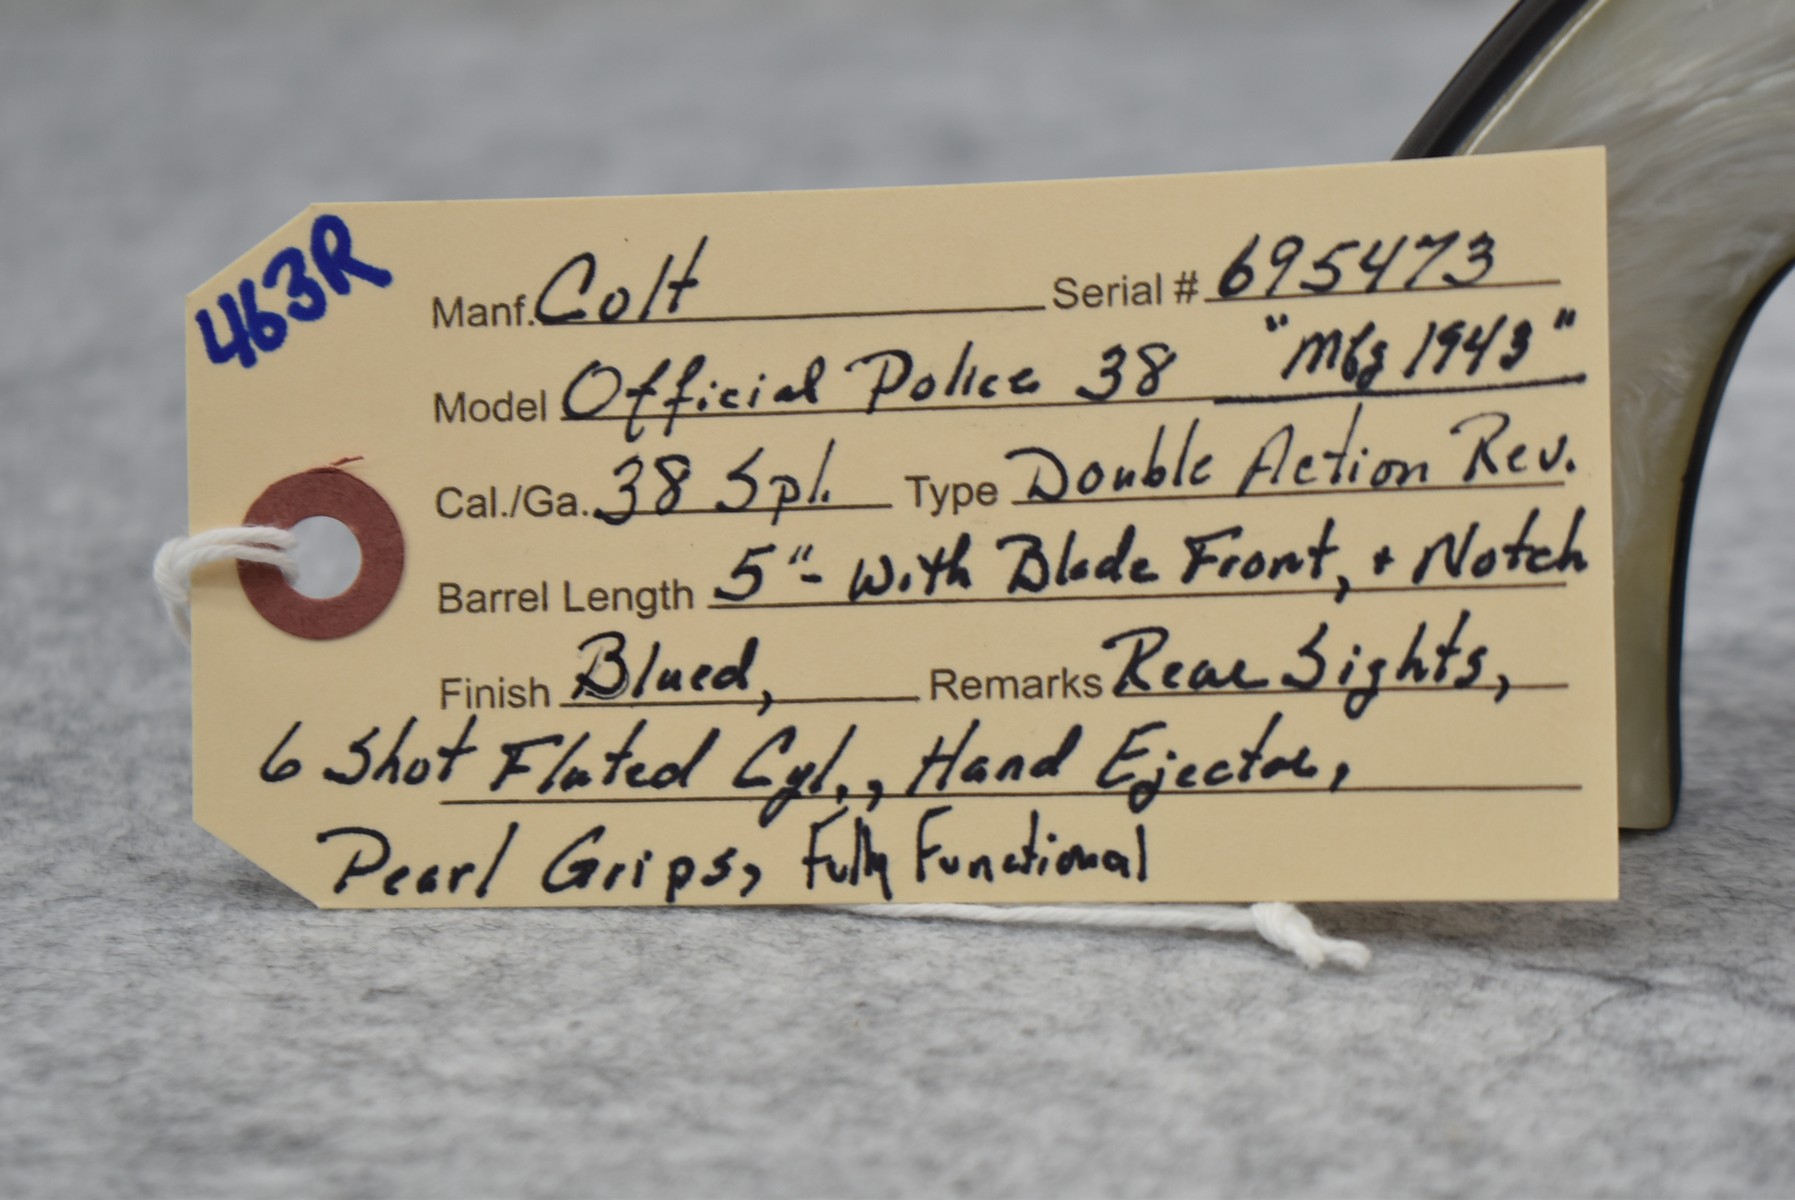 463R
Manf. Colt Serial # 695473
Model Official Police 38 "Mfg 1943"
Cal./Ga. 38 Spl. Type Double Action Rev.
Barrel Length 5"- with Blade Front, + Notch
Finish Blued, Remarks Rear Sights,
6 Shot Fluted Cyl., Hand Ejector,
Pearl Grips, Fully Functional